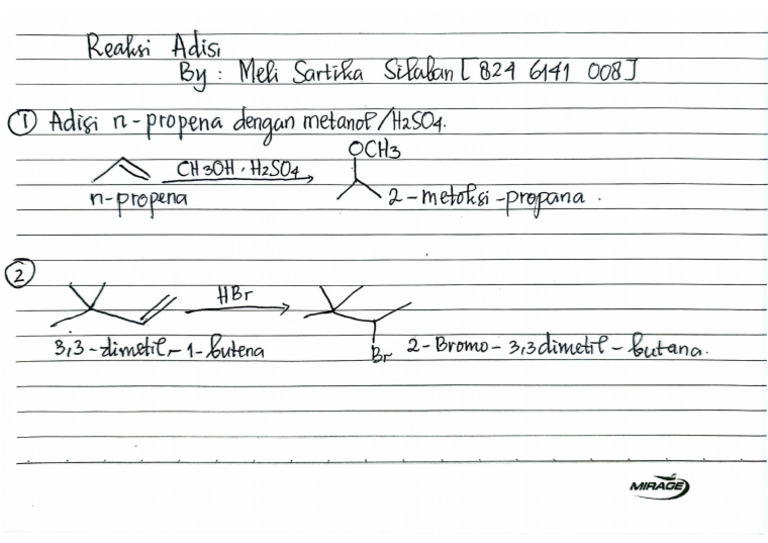 Reaksi Adisi
By : Meli Sartika Silaban [824 6141 008]
① Adisi n-propena dengan metanol/H2SO4.
OCH3
CH3OH · H2SO4
n-propena
2-metoksi-propana.
②
HBr
3,3-dimetil-1-butena
Br
2-Bromo-3,3dimetil-butana.
MIRAGE